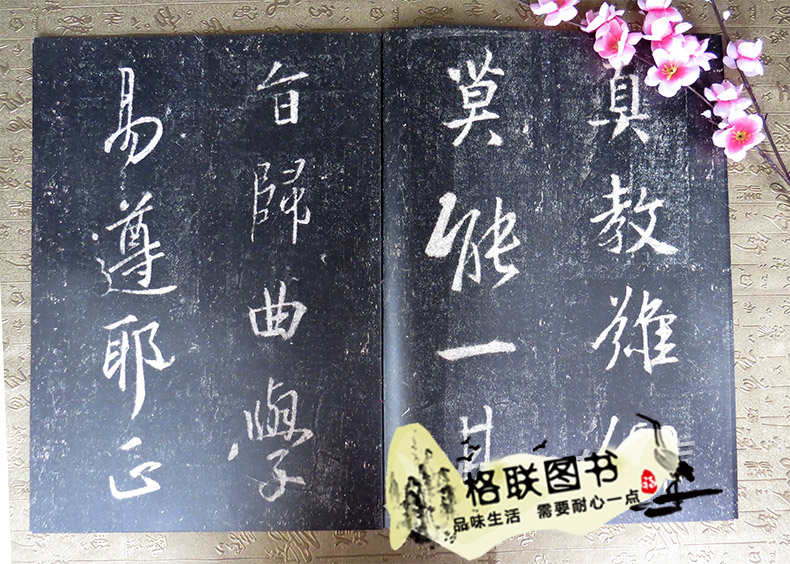 真教難
莫能一其
旨歸曲學
易遵耶正
格联图书
品味生活 需要耐心一点